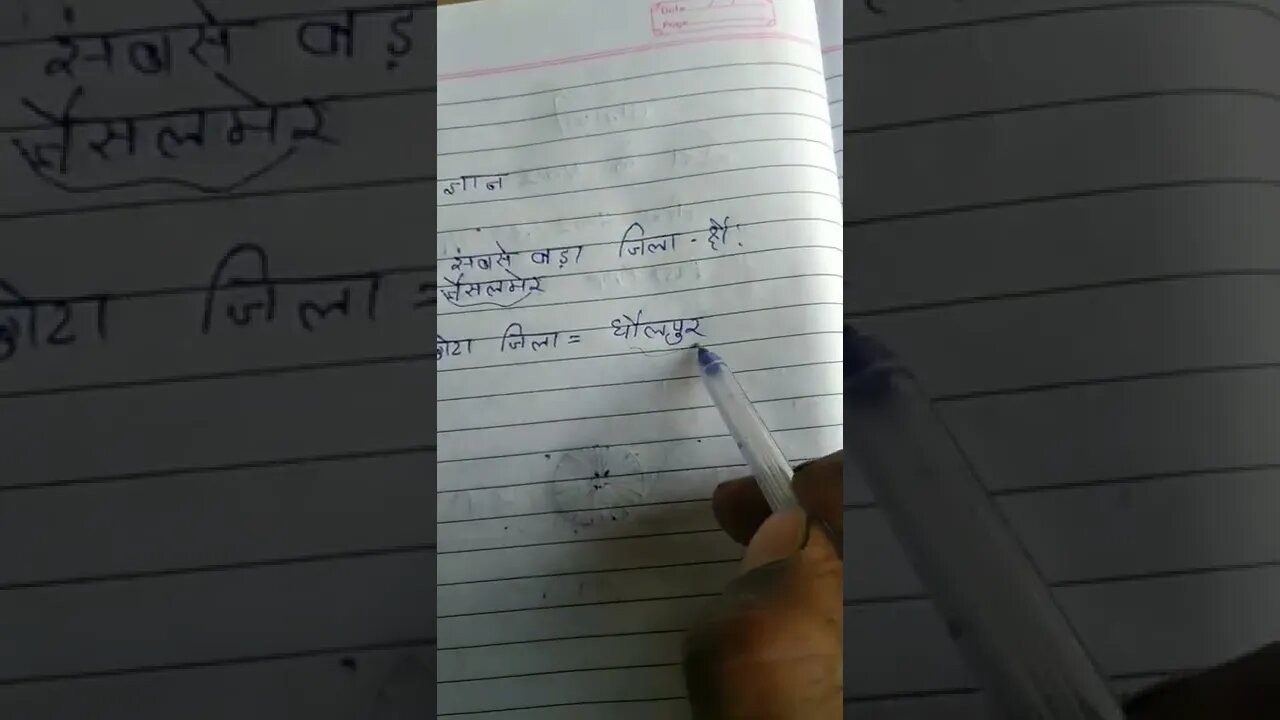 Date
Page
ज्ञान
सबसे बड़ा जिला - है!
जैसलमेर
छोटा जिला = धौलपुर